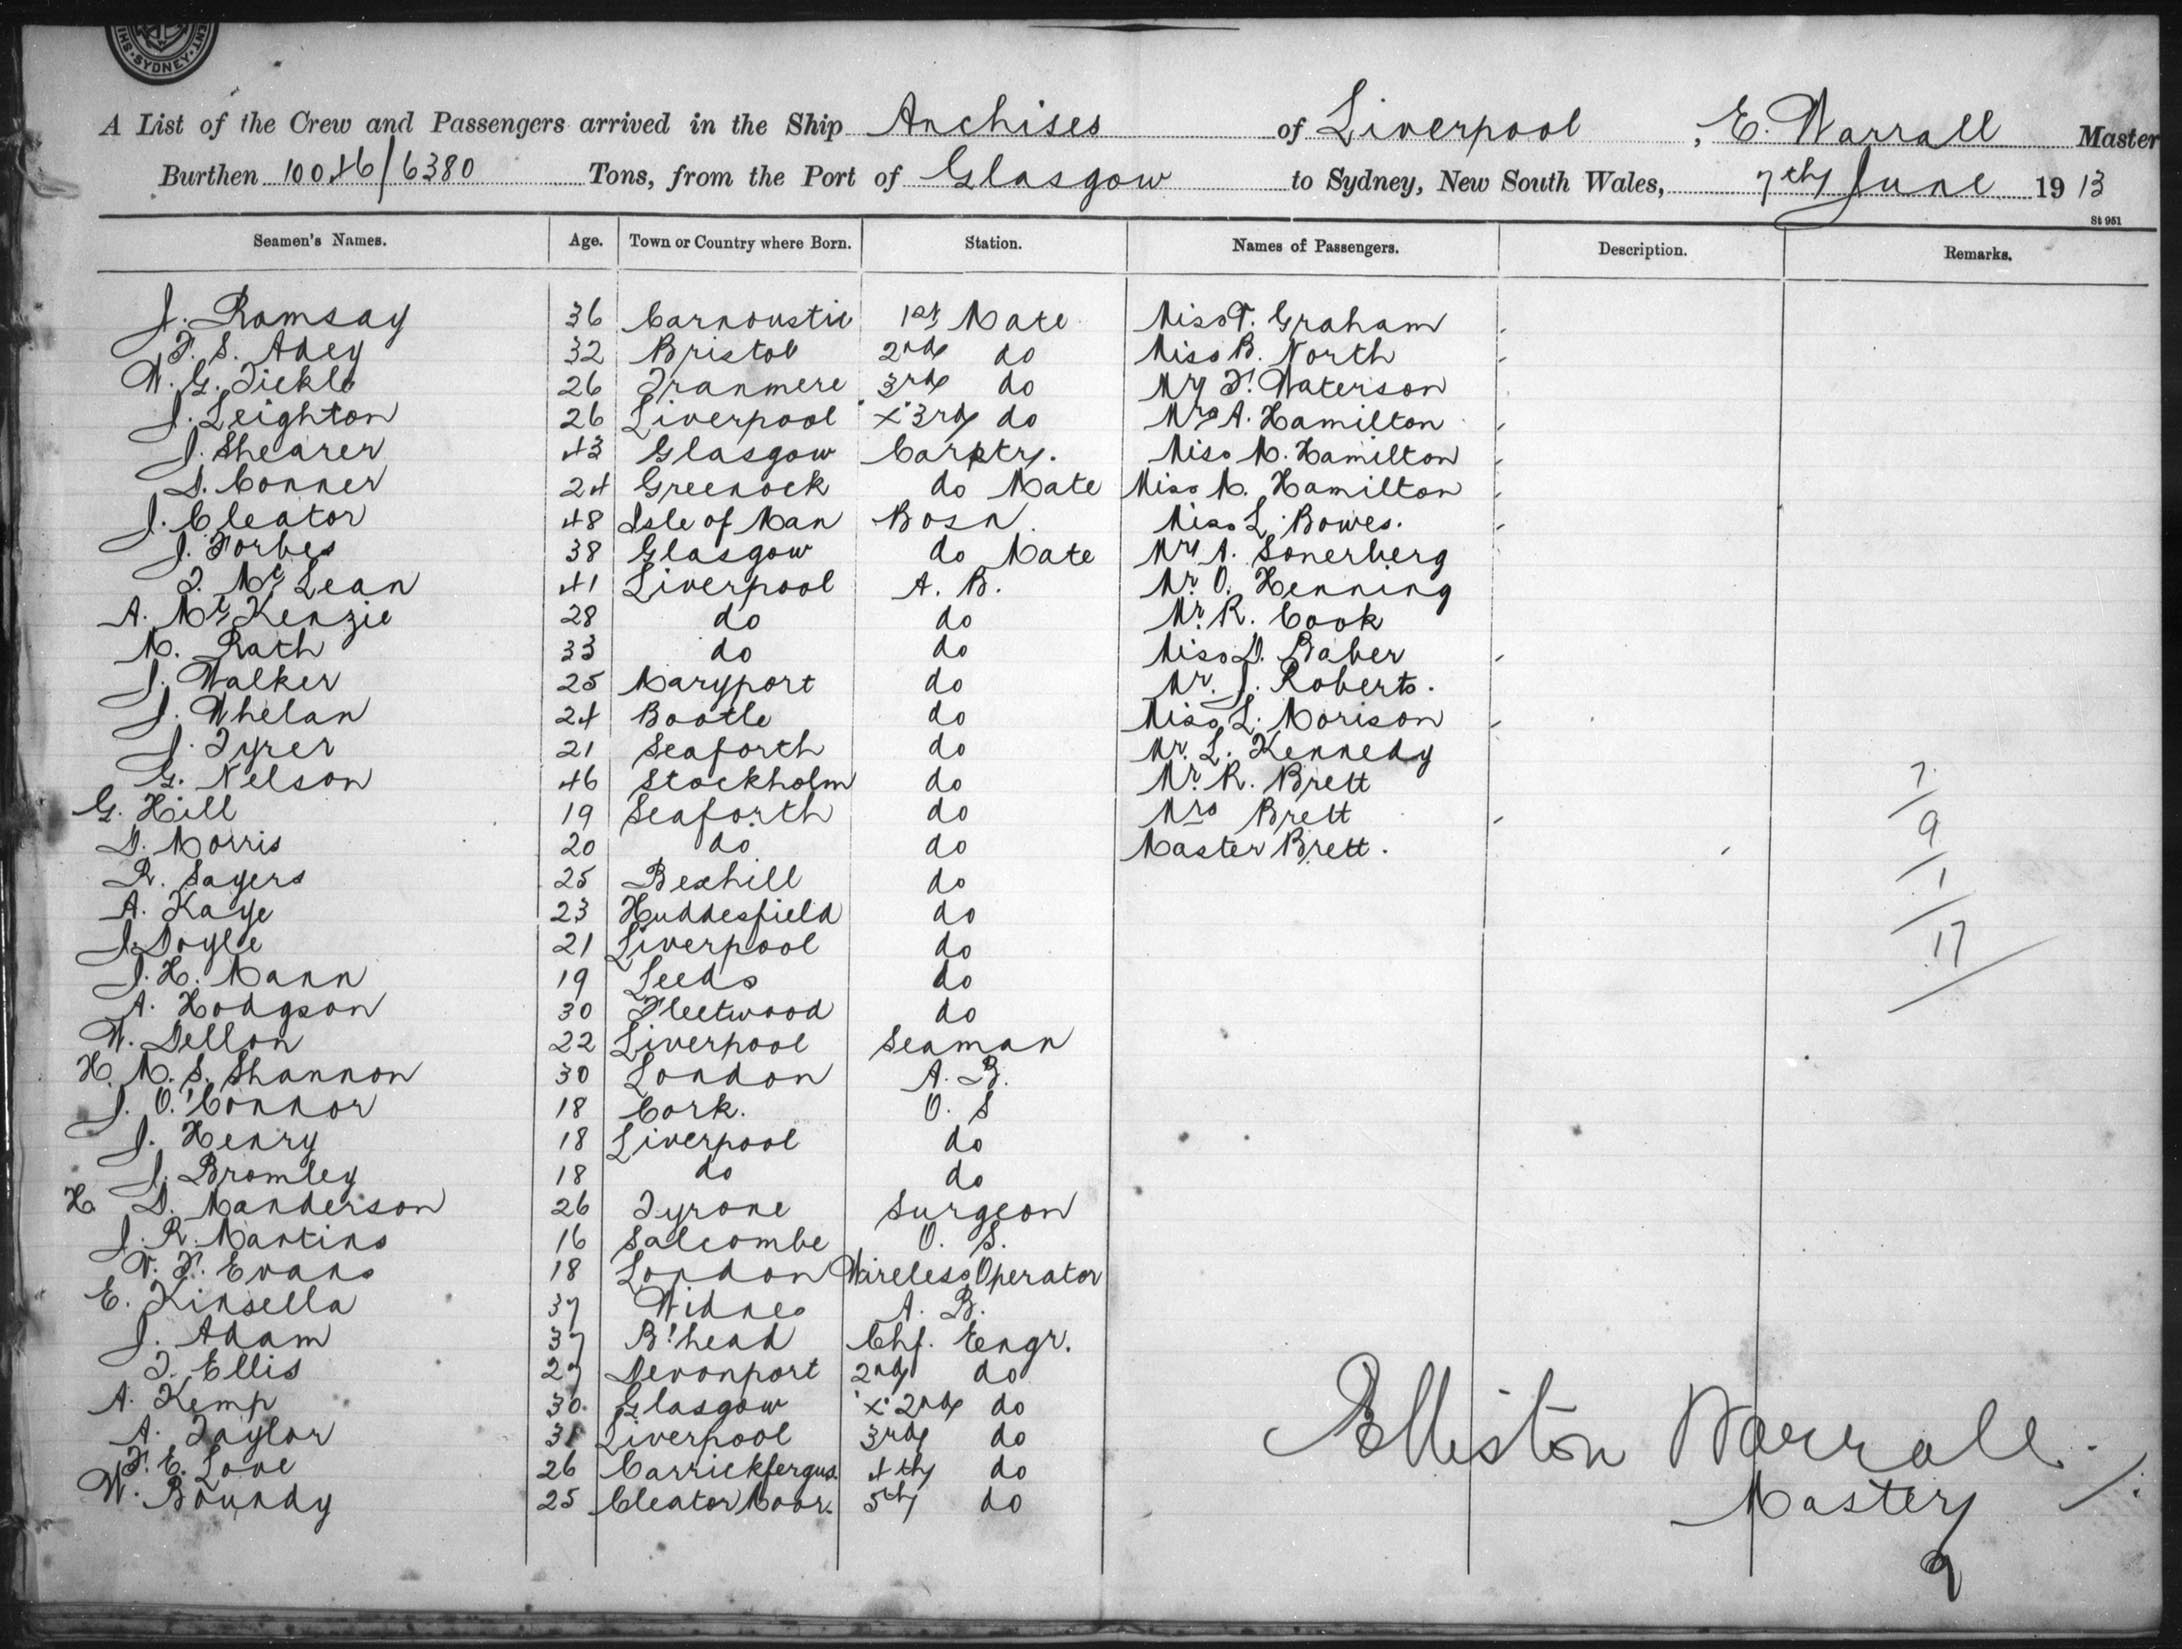 SYDNEY
A List of the Crew and Passengers arrived in the Ship Anchises of Liverpool, E. Warrall Master
Burthen 10046/6380 Tons, from the Port of Glasgow to Sydney, New South Wales, 7th June 1913
St 951
Seamen's Names. Age. Town or Country where Born. Station. Names of Passengers. Description. Remarks.
J. Ramsay 36 Carnoustie 1st Mate Miss T. Graham
F. S. Adey 32 Bristol 2nd do Miss B. North
W. G. Tickle 26 Tranmere 3rd do Mr F. Waterson
J. Leighton 26 Liverpool "x" 3rd do Mrs A. Hamilton
J. Shearer 43 Glasgow Carptr. Miss M. Hamilton
D. Conner 24 Greenock do Mate Miss M. Hamilton
J. Cleator 48 Isle of Man Bosn. Miss L. Bowes.
J. Forbes 38 Glasgow do Mate Mr A. Sonerberg
T. McLean 41 Liverpool A. B. Mr. O. Henning
A. McKenzie 28 do do Mr. R. Cook
M. Rath 33 do do Miss D. Baber
J. Walker 25 Maryport do Mr. J. Roberts.
J. Whelan 24 Bootle do Miss L. Morison
J. Tyrer 21 Seaforth do Mr. L. Kennedy
G. Nelson 46 Stockholm do Mr. R. Brett 7
G. Hill 19 Seaforth do Mrs Brett 9
D. Morris 20 do do Master Brett. 1
R. Sayers 25 Bexhill do
A. Kaye 23 Huddesfield do
J. Doyle 21 Liverpool do 17
J. H. Mann 19 Leeds do
A. Hodgson 30 Fleetwood do
W. Dellon 22 Liverpool Seaman
H. M. S. Shannon 30 London A. B.
J. O'Connor 18 Cork. O. S
J. Henry 18 Liverpool do
J. Bromley 18 do do
H D. Manderson 26 Tyrone Surgeon
J. R. Martins 16 Salcombe O. S.
V. F. Evans 18 London Wireless Operator
E. Kinsella 37 Widnes A. B.
J. Adam 37 B'head Chf. Engr.
T. Ellis 27 Devonport 2nd do
A. Kemp 30 Glasgow "x" 2nd do
A. Taylor 31 Liverpool 3rd do
F. E. Love 26 Carrickfergus 4th do
W. Boundy 25 Cleator Moor. 5th do
Elliston Warrall.
Master